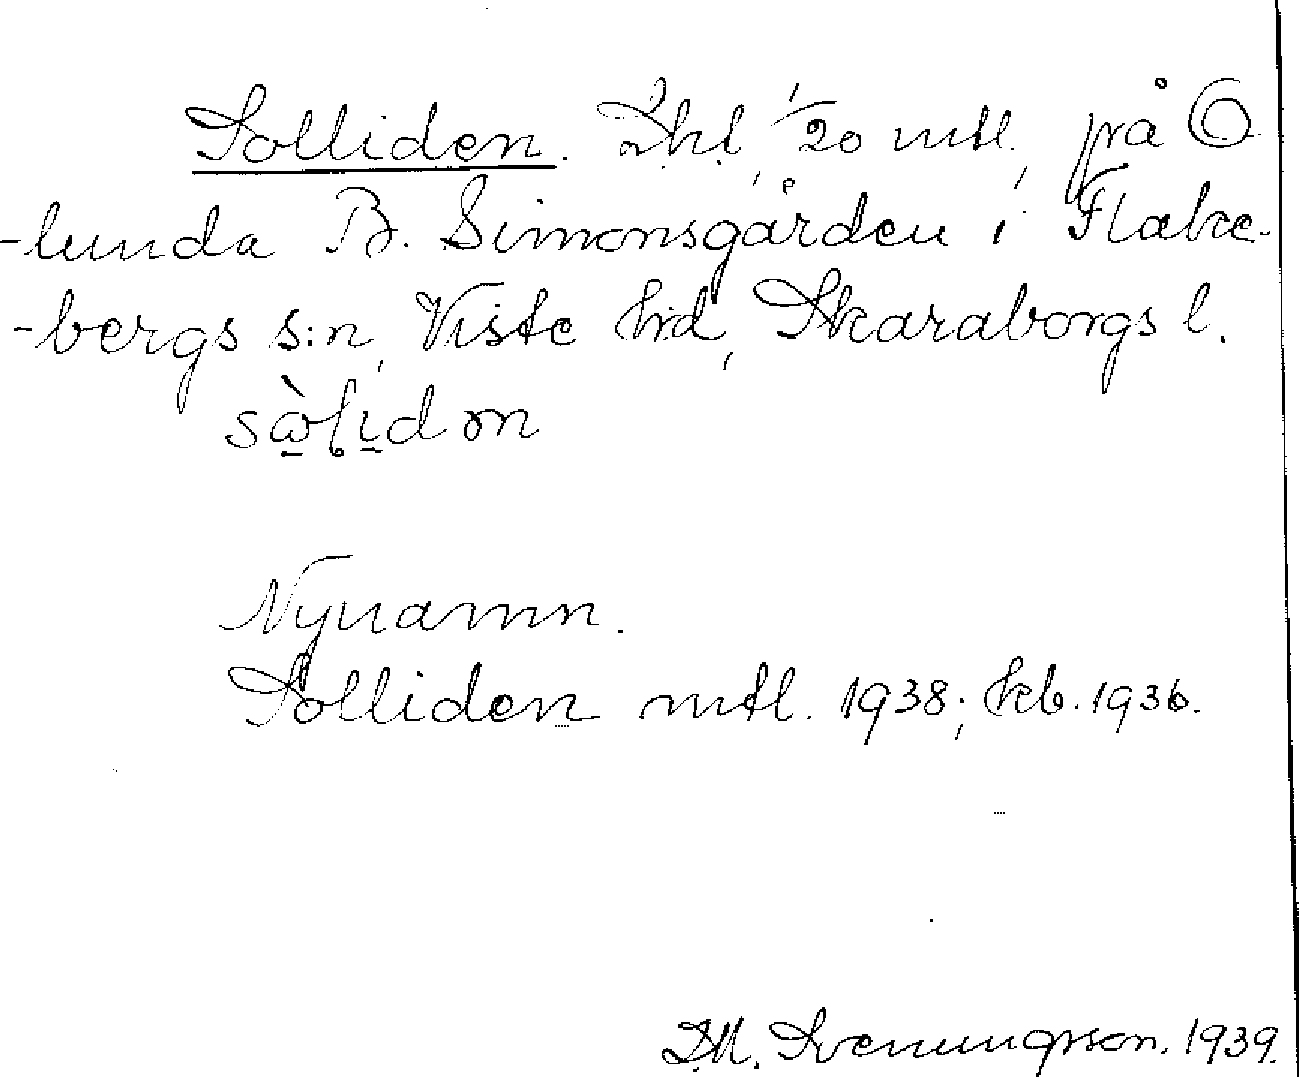 Solliden. Lht, 1/20 mtl, på O
-lunda B. Simonsgården i Flake-
-bergs s:n, Viste hrd, Skaraborgs l.
Nynamn.
Solliden mtl. 1938; kb. 1936.
D.M. Svenungsson. 1939.